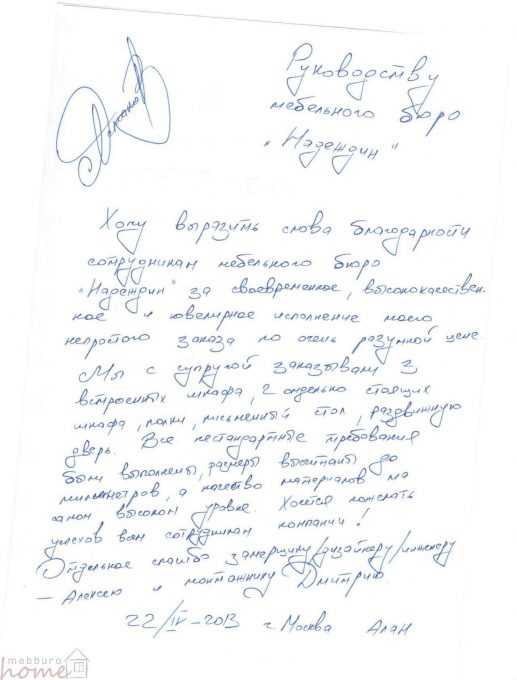 Руководству
мебельного бюро
"Надеждин"
Хочу выразить слова благодарности
сотрудникам мебельного бюро
"Надеждин" за своевременное, высококачествен-
ное и ювелирное исполнение моего
непростого заказа по очень разумной цене
Мы с супругой заказывали 3
встроенных шкафа, 2 отдельно стоящих
шкафа, полки, письменный стол, раздвижную
дверь. Все нестандартные требования
были выполнены, размеры высчитаны до
миллиметров, а качество материалов на
самом высоком уровне. Хочется пожелать
успехов всем сотрудникам компании!
Отдельное спасибо замерщику/дизайнеру/инженеру
– Алексею и монтажнику Дмитрию
22/IV-2013 г. Москва Алан
mebburo
home